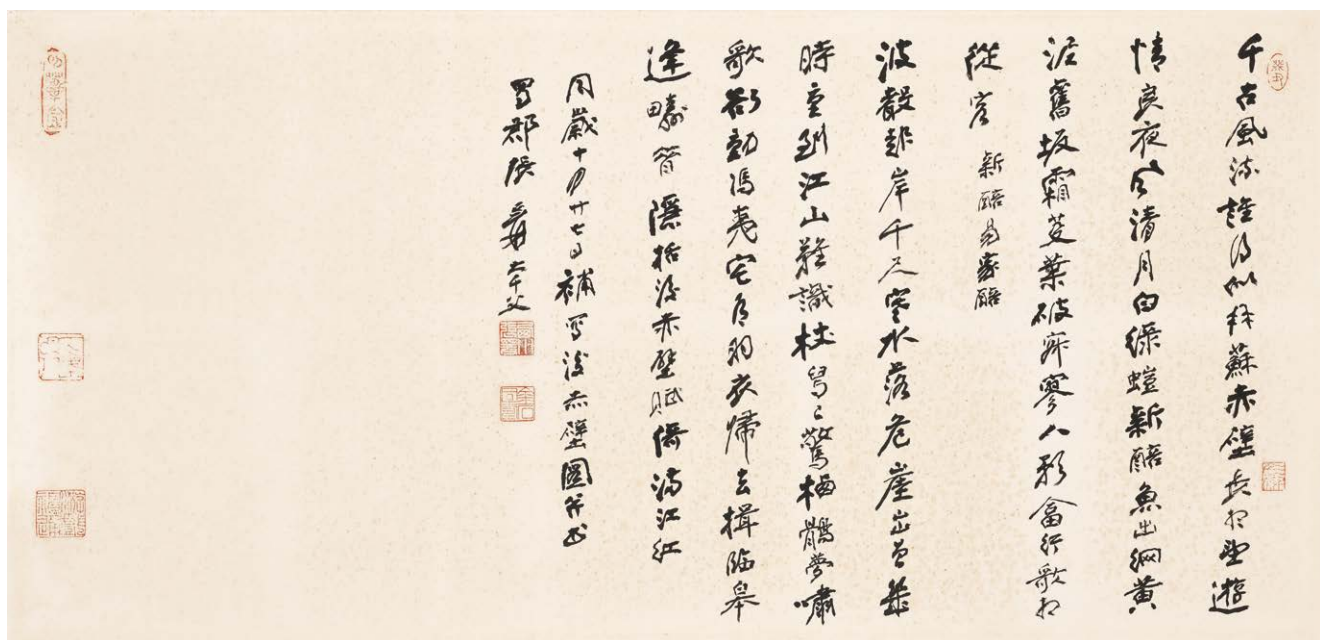 千古風流誰得似蘇赤壁長相望遊
情良夜風清月白綠螘新醅魚出網黃
泥舊坂霜葉破寂寥人影行歌相
從客 新醅易家醅
波起岸千尺寒水落危崖出曾幾
時重到江山難識杖舄已驚栖鶻夢嘯
歌欲動馮夷宅有羽衣歸去揖臨皋
逢疇昔 隱括後赤壁賦倚滿江紅
同歲十月廿七日補寫後赤壁圖并書
蜀郡張爰大千父